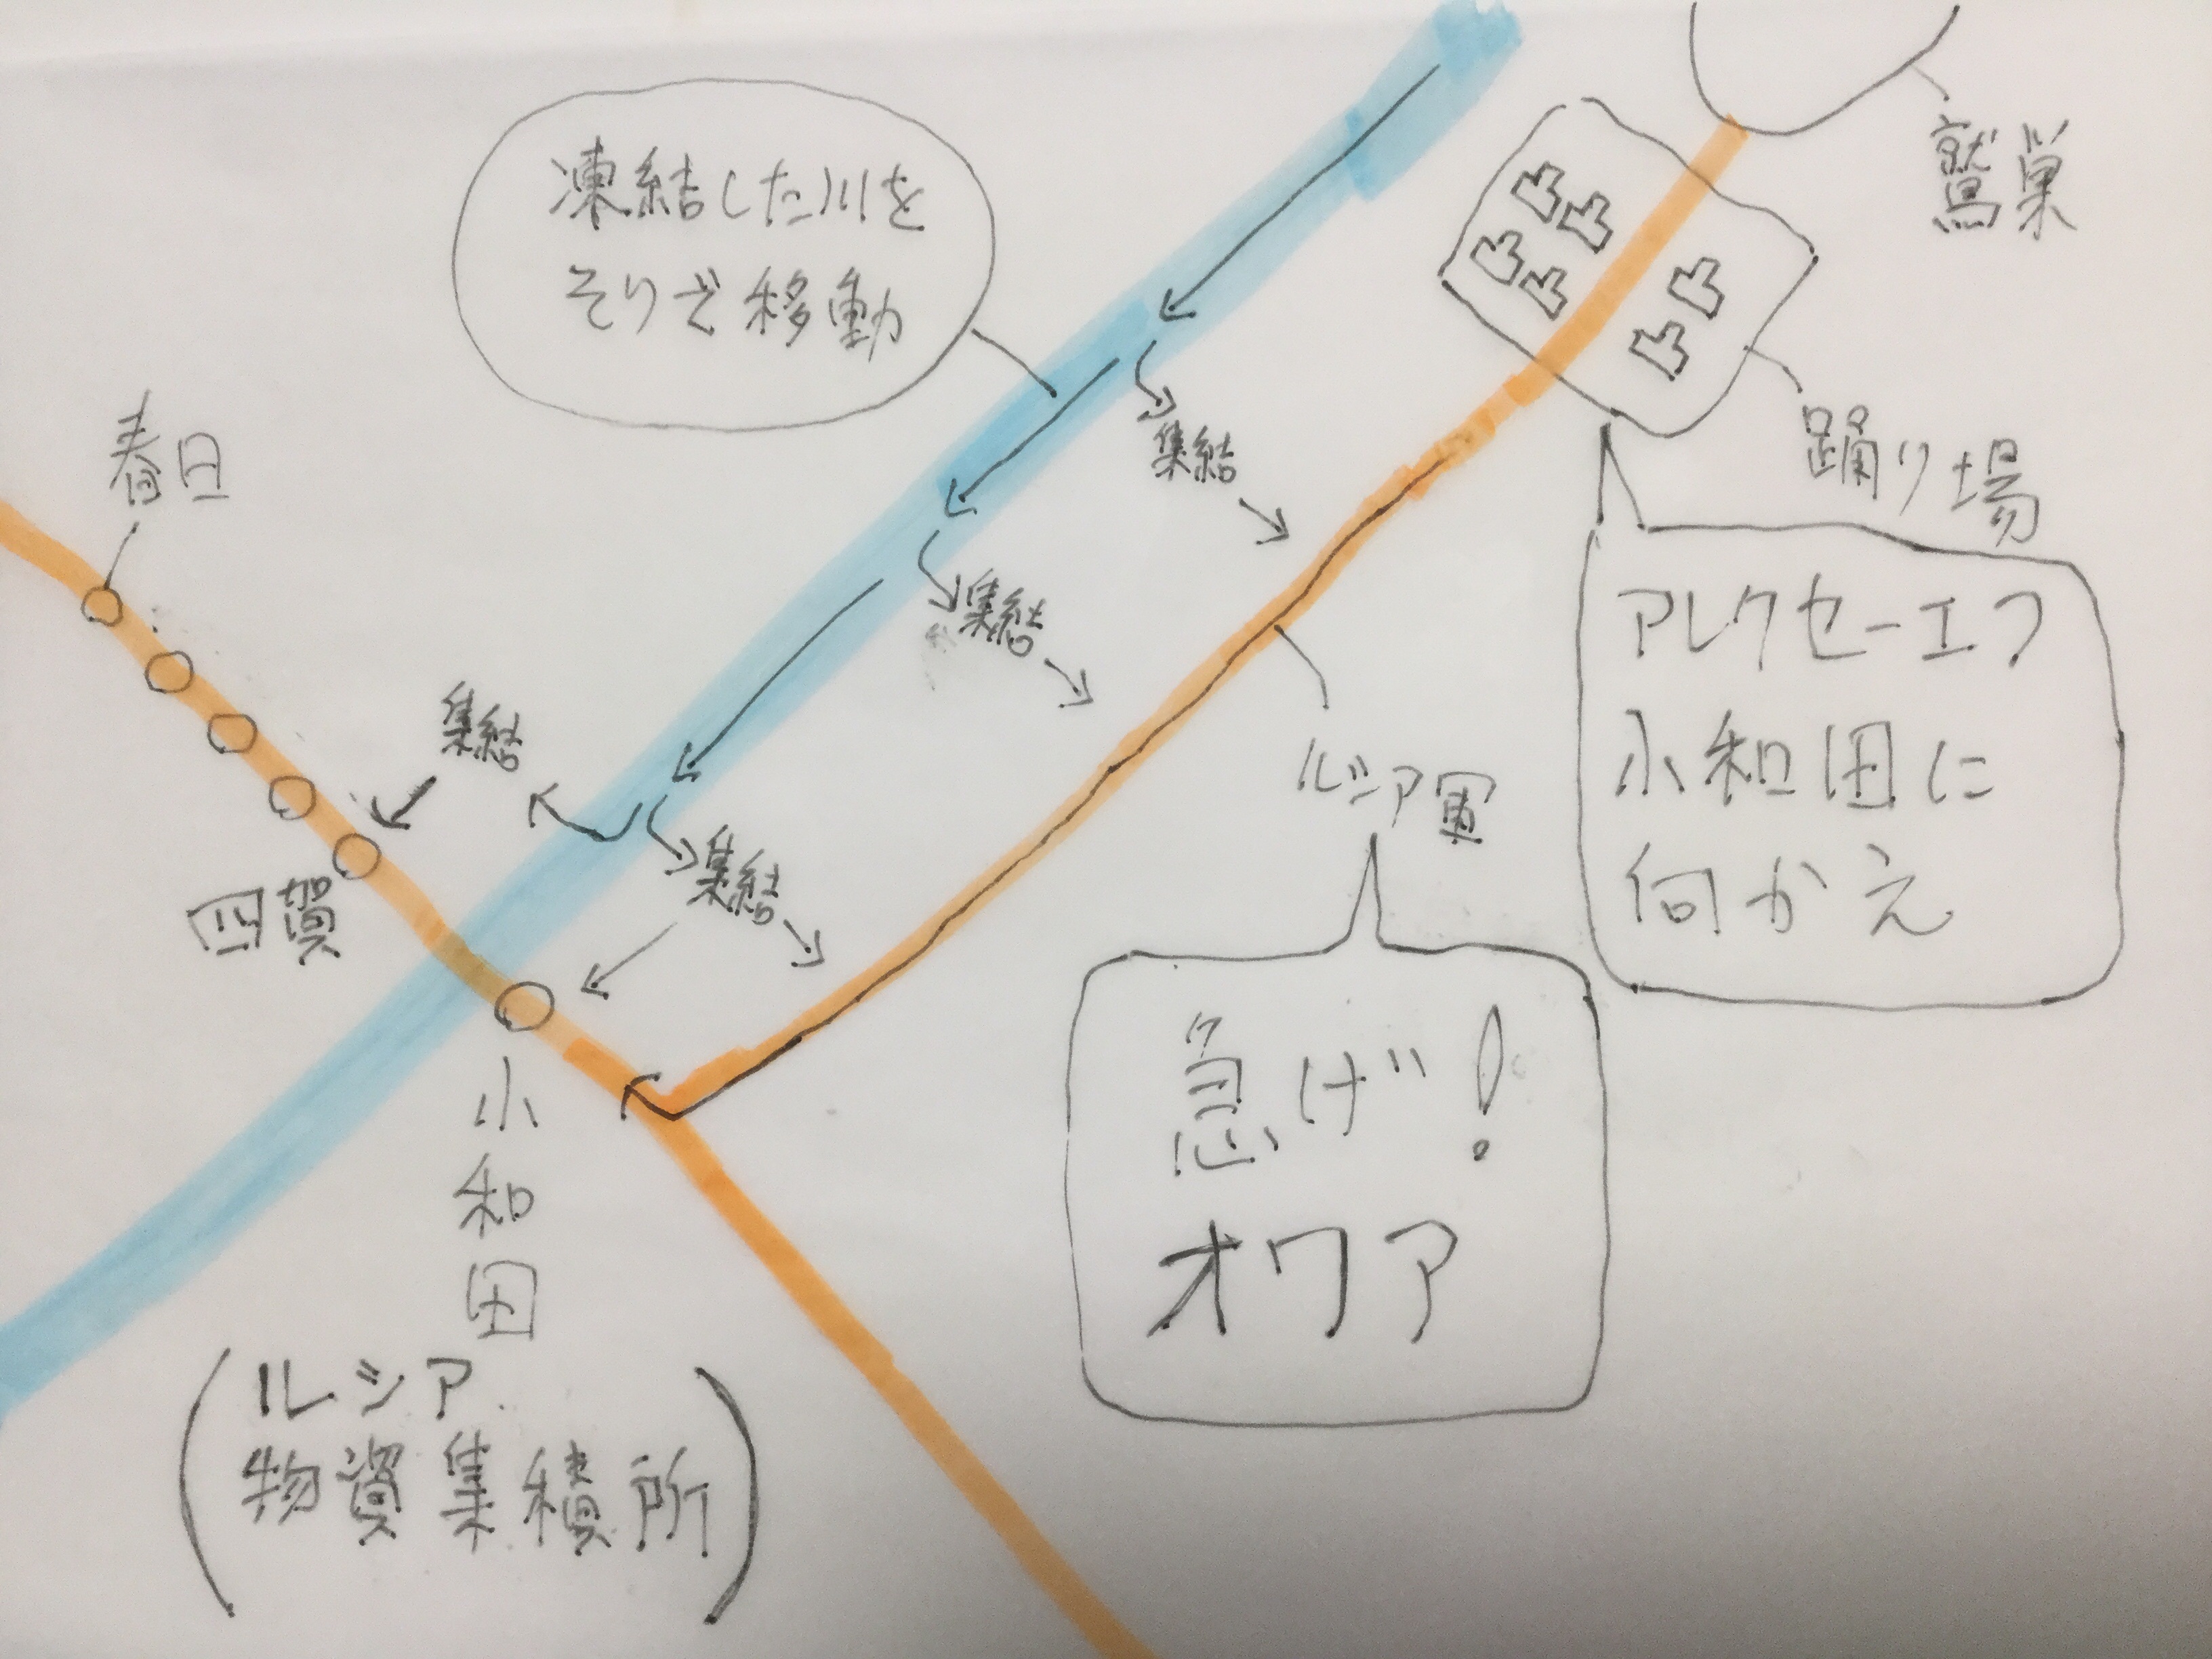 凍結した川を
そりで移動
鷲巣
踊り場
集結
集結
集結
集結
春日
四賀
小和田
(ルシア
物資集積所)
ルシア軍
急げ!
オワア
アレクセーエフ
小和田に
向かえ